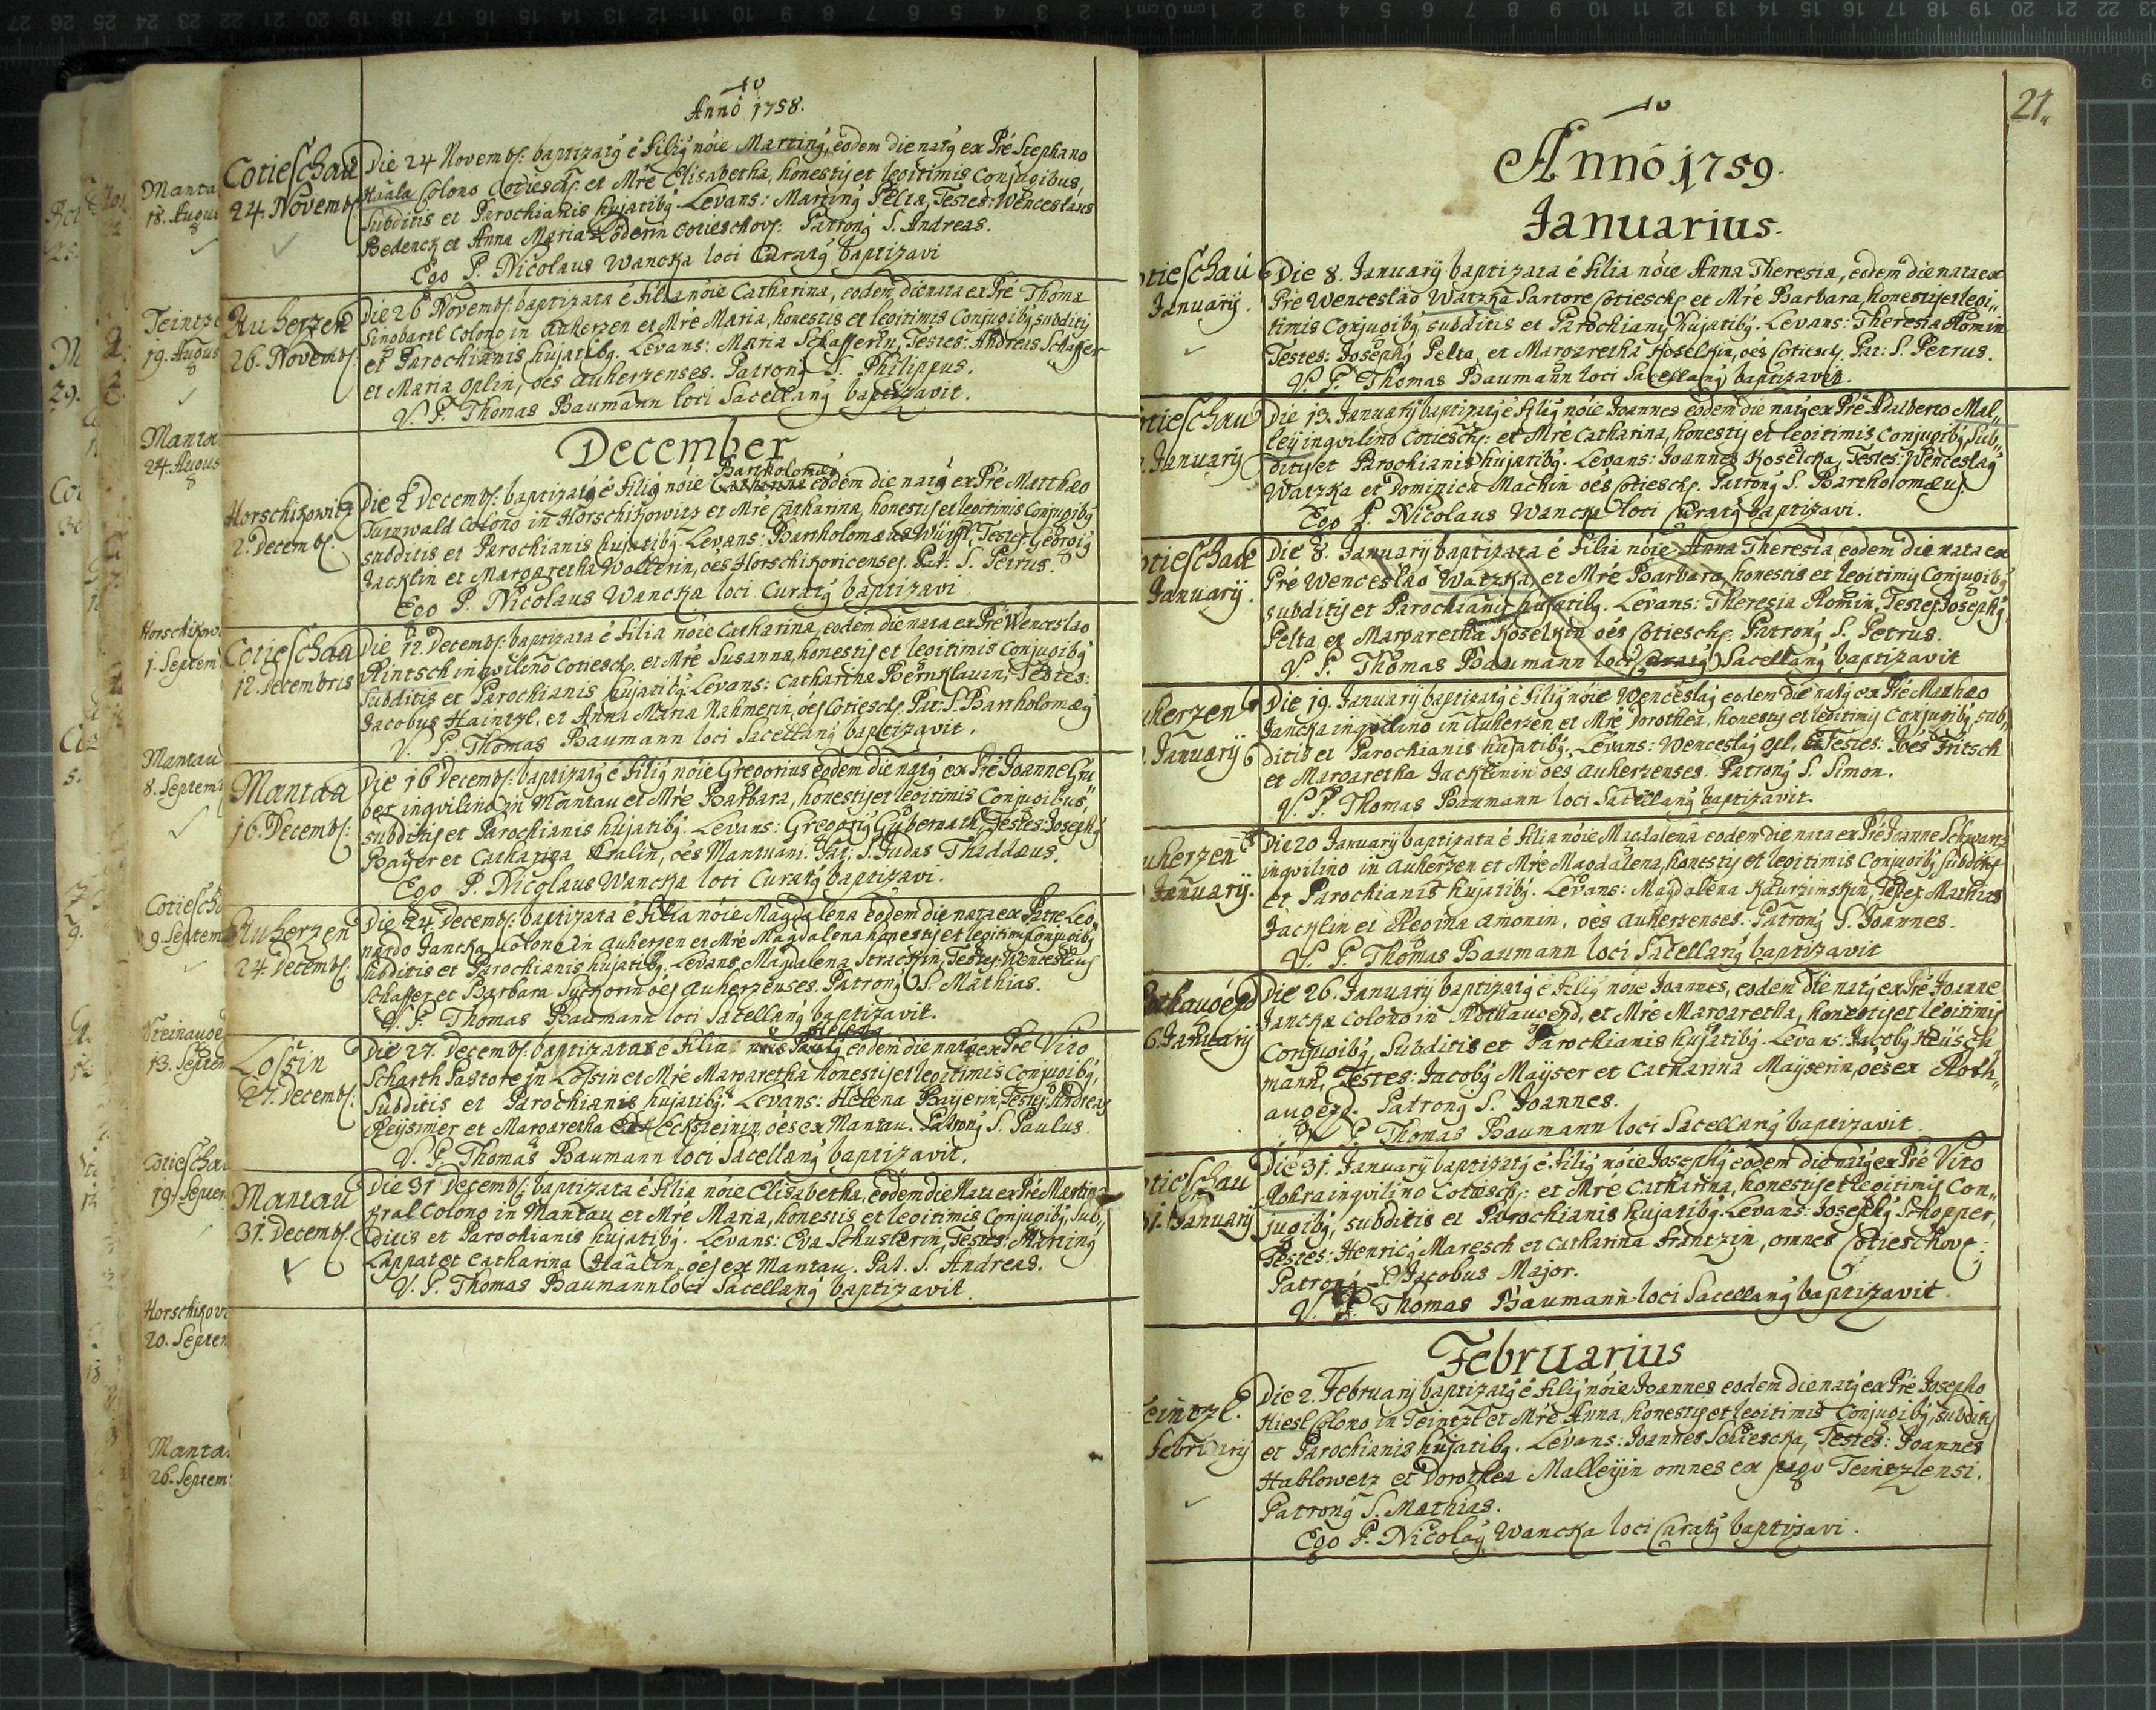 Anno 1758.
Cotieschau
24. Novemb:
Die 24 Novemb: baptizatq é filiq nóie Martinq, eodem die natq ex Pré Stephano
Haala Colono Cotiesch: et Mré Elisabetha, honestis et legitimis Conjugibus,
Subditis et Parochianis hujatibq. Levans: Martinq Pelta, Testes: Wenceslaus
Bedenck et Anna Maria Löderin Cotieschov: Patronq S. Andreas.
Ego P. Nicolaus Wancka loci Curatq baptizavi
Auherzen
26. Novemb:
Die 26 Novemb: baptizata é filia nóie Catharina, eodem die nata ex Pré Thoma
Sinobartl Colono in Auherzen et Mré Maria, honestis et legitimis Conjugibq, subditis
et Parochianis hujatibq. Levans: Maria Schafferin, Testes: Andreas Schaffer
et Maria Oplin, oés Auherzenses. Patronq S. Philippus.
V. P. Thomas Baumann loci Sacellanq baptizavit.
December
Bartholomæq
Horschikowitz
2. Decemb:
Die 2 Decemb: baptizatq é filiq nóie Catharina eodem die natq ex Pré Matthæo
Turnwald Colono in Horschikowitz et Mré Catharina, honestis et legitimis Conjugibq
subditis et Parochianis hujatibq. Levans: Bartholomæus Würfl, Testes Georgiq
Jacklin et Margaretha Wallerin, oés Horschikovicenses. Pat: S. Petrus.
Ego P. Nicolaus Wancka loci Curatq baptizavi
Cotieschau
12. Decembris
Die 12 Decemb: baptizata é filia nóie Catharina, eodem die nata ex Pré Wenceslao
Rintsch inqvilino Cotiesch: et Mré Susanna, honestis et legitimis Conjugibq
Subditis et Parochianis hujatibq. Levans: Catharina Bernklauin, Testes:
Jacobus Haintzl. et Anna Maria Nahmerin, oés Cotiesch: Pat: S. Bartholomæq
V. P. Thomas Baumann loci Sacellanq baptizavit.
Mantau
16. Decemb:
Die 16 Decemb: baptizatq é filiq nóie Gregorius eodem die natq ex Pré Joanne Gru„
ber inqvilino in Mantau et Mré Barbara, honestis et legitimis Conjugibus,
subditis et Parochianis hujatibq. Levans: Gregoriq Gubernath, Testes: Josephq
Bayer et Catharina Kralin, oés Mantuani. Pat: S. Judas Thaddæus.
Ego P. Nicolaus Wancka loci Curatq baptizavi.
Auherzen
24. Decemb:
Die 24 Decemb: baptizata é filia nóie Magdalena eodem die nata ex Patre Leo„
nardo Jancka Colono in Auherzen et Mré Magdalena honestis et legitimis Conjugibq
Subditis et Parochianis hujatibq. Levans Magdalena Strackin, Testes Wenceslaus
Schaffer et Barbara Syckorin oés Auherzenses. Patronq S. Mathias.
V. P. Thomas Baumann loci Sacellanq baptizavit.
Helena
Lossin
27. Decemb:
Die 27. Decemb: baptizata é filia nóie Paulq eodem die nata ex Pré Vito
Scharth Pastore in Lossin et Mré Margaretha honestis et legitimis Conjugibq,
Subditis et Parochianis hujatibq. Levans: Helena Bayerin, Testes: Andreas
Reysimer et Margaretha Ecksteinin, oés ex Mantau. Patronq S. Paulus.
V. P. Thomas Baumann loci Sacellanq baptizavit.
Mantau
31. Decemb:
Die 31 Decemb: baptizata é filia nóie Elisabetha, eodem die Nata ex Pré Martino
Kral Colono in Mantau et Mré Maria, honestis et legitimis Conjugibq, Sub„
ditis et Parochianis hujatibq. Levans: Eva Schusterin, Testes: Martinq
Lappat et Catharina Haâlin, oés ex Mantau. Pat. S. Andreas.
V. P. Thomas Baumann loci Sacellanq baptizavit.
21.
Anno 1759.
Januarius.
otieschau
Januarij.
Die 8. Januarij baptizata é filia nóie Anna Theresia, eodem die nata ex
Pré Wenceslao Watzka Sartore Cotiesch: et Mré Barbara, honestis et legi„
timis Conjugibq subditis et Parochianis hujatibq. Levans: Theresia Romin
Testes: Josephq Pelta, et Margaretha Koselkin, oés Cotiesch. Pat: S. Petrus.
V. P. Thomas Baumann loci Sacellanq baptizavit.
otieschau
Januarij
Die 13. Januarij baptizatq é filiq nóie Joannes eodem die natq ex Pré Adalberto Mal„
leij inqvilino Cotiesch: et Mré Catharina, honestis et legitimis Conjugibq, Sub„
ditis et Parochianis hujatibq. Levans: Joannes Koselcka, Testes: Wenceslaq
Watzka et Dominica Machin oés Cotiesch. Patronq S. Bartholomæus.
Ego P. Nicolaus Wancka loci Curatq baptizavi.
otieschau
Januarij.
Die 8. Januarij baptizata é filia nóie Anna Theresia, eodem die nata ex
Pré Wenceslao Watzka, et Mré Barbara, honestis et legitimis Conjugibq
subditis et Parochianis hujatibq. Levans: Theresia Romin, Testes Josephq
Pelta et Margaretha Koselkin oés Cotiesch: Patronq S. Petrus.
V. P. Thomas Baumann loci Curatq Sacellanq baptizavit
uherzen
Januarij
Die 19. Januarij baptizatq é filiq nóie Wenceslaq eodem die natq ex Pré Mathæo
Jancka inqvilino in Auherzen et Mré Dorothea, honestis et legitimis Conjugibq, sub„
ditis et Parochianis hujatibq. Levans: Wenceslaq Opl, Testes: Joes Fritsch
et Margaretha Jacklinin oés Auherzenses. Patronq S. Simon.
V. P. Thomas Baumann loci Sacellanq baptizavit.
uherzen
Januarij.
Die 20 Januarij baptizata é filia nóie Magdalena eodem die nata ex Pré Joanne Schwantz
inqvilino in Auherzen et Mré Magdalena, honestis et legitimis Conjugibq, subditis
et Parochianis hujatibq. Levans: Magdalena Kaurzimskin, Testes Mathias
Jacklin et Regina Amonin, oés Auherzenses. Patronq S. Joannes.
V. P. Thomas Baumann loci Sacellanq baptizavit
othaugézd
6. Januarij
Die 26. Januarij baptizatq é filiq nóie Joannes, eodem die natq ex Pré Joanne
Jancka Colono in Rothaugezd, et Mré Margaretha, honestis et legitimis
Conjugibq, Subditis et Parochianis hujatibq. Levans: Jacobq Heüsch„
mann, Testes: Jacobq Mayser et Catharina Mayserin, oés ex Roth„
augezd. Patronq S. Joannes.
V. P. Thomas Baumann loci Sacellanq baptizavit.
otieschau
31. Januarij
Die 31. Januarij baptizatq é filiq nóie Josephq eodem die natq ex Pré Vito
Rohra inqvilino Cotiesch: et Mré Catharina, honestis et legitimis Con„
jugibq, subditis et Parochianis hujatibq. Levans: Josephq Schopper,
Testes: Henricq Maresch et Catharina Frantzin, omnes Cotieschov:
Patronq S. Jacobus Major.
V. P. Thomas Baumann loci Sacellanq baptizavit.
Februarius
eintzl.
Februarij
Die 2. Februarij baptizatq é filiq nóie Joannes eodem die natq ex Pré Josepho
Hiesl Colono in Teintzl et Mré Anna, honestis et legitimis Conjugibq, subditis
et Parochianis hujatibq. Levans: Joannes Soliescka, Testes: Joannes
Hablowetz et Dorothea Malleyin omnes ex pago Teintzlensi.
Patronq S. Mathias.
Ego P. Nicolaq Wancka loci Curatq baptizavi.